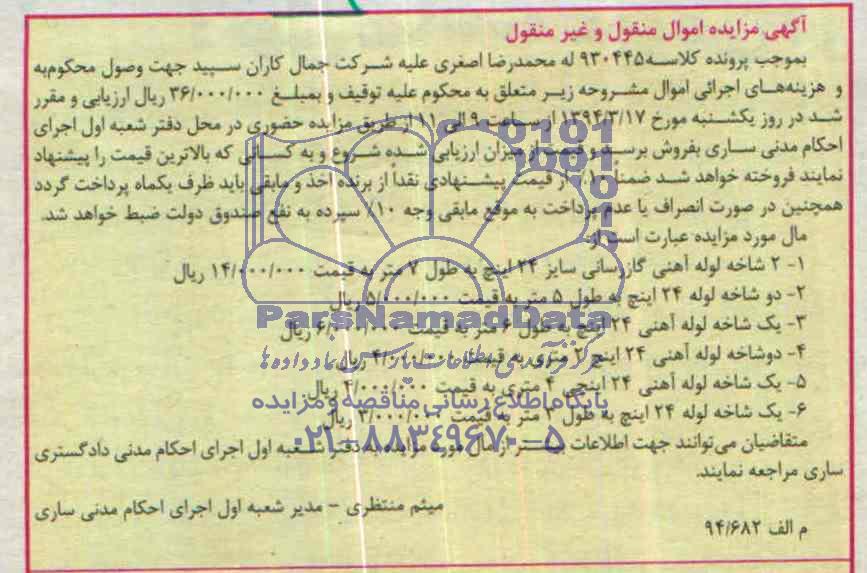 آگهی مزایده اموال منقول و غیر منقول
بموجب پرونده کلاسه ۹۳۰۴۴۵ له محمدرضا اصغری علیه شرکت جمال کاران سپید جهت وصول محکوم‌به
و هزینه‌های اجرائی اموال مشروحه زیر متعلق به محکوم علیه توقیف و بمبلغ ۳۶/۰۰۰/۰۰۰ ریال ارزیابی و مقرر
شد در روز یکشنبه مورخ ۱۳۹۴/۳/۱۷ از ساعت ۹ الی ۱۱ از طریق مزایده حضوری در محل دفتر شعبه اول اجرای
احکام مدنی ساری بفروش برسد و قیمت از میزان ارزیابی شده شروع و به کسانی که بالاترین قیمت را پیشنهاد
نمایند فروخته خواهد شد ضمناً ۱۰٪ از قیمت پیشنهادی نقداً از برنده اخذ و مابقی باید ظرف یکماه پرداخت گردد
همچنین در صورت انصراف یا عدم پرداخت به موقع مابقی وجه ۱۰٪ سپرده به نفع صندوق دولت ضبط خواهد شد.
مال مورد مزایده عبارت است از:
۱- ۲ شاخه لوله آهنی گازرسانی سایز ۲۴ اینچ به طول ۷ متر به قیمت ۱۴/۰۰۰/۰۰۰ ریال
۲- دو شاخه لوله ۲۴ اینچ به طول ۵ متر به قیمت ۵/۰۰۰/۰۰۰ ریال
۳- یک شاخه لوله آهنی ۲۴ اینچ به طول ۶ متر به قیمت ۶/۰۰۰/۰۰۰ ریال
۴- دوشاخه لوله آهنی ۲۴ اینچ ۲ متری به قیمت ۴/۰۰۰/۰۰۰ ریال
۵- یک شاخه لوله آهنی ۲۴ اینچی ۴ متری به قیمت ۴/۰۰۰/۰۰۰ ریال
۶- یک شاخه لوله ۲۴ اینچ به طول ۳ متر به قیمت ۳/۰۰۰/۰۰۰ ریال
متقاضیان می‌توانند جهت اطلاعات بیشتر از مال مورد مزایده به دفتر شعبه اول اجرای احکام مدنی دادگستری
ساری مراجعه نمایند.
میثم منتظری - مدیر شعبه اول اجرای احکام مدنی ساری
م الف ۹۴/۶۸۲
ParsNamadData
مرکز فرآوری اطلاعات پارس نماد داده‌ها
پایگاه اطلاع رسانی مناقصه و مزایده
۰۲۱-۸۸۳۴۹۶۷۰-۵